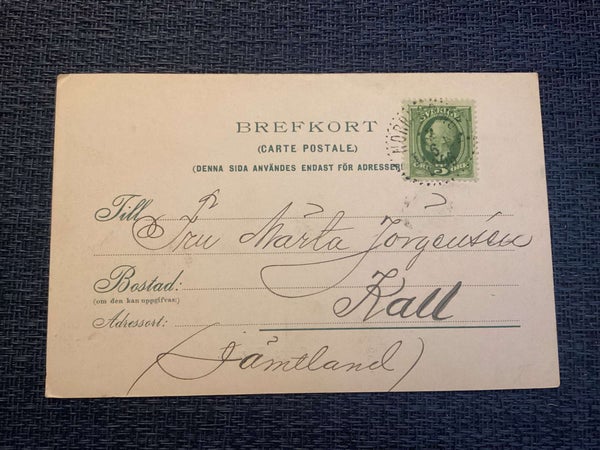 BREFKORT
(CARTE POSTALE.)
(DENNA SIDA ANVÄNDES ENDAST FÖR ADRESSEN
SVERIGE
5
Till Fru Märta Jörgensen
Bostad:
(om den kan uppgifvas:)
Kall
Adressort:
(Jämtland)